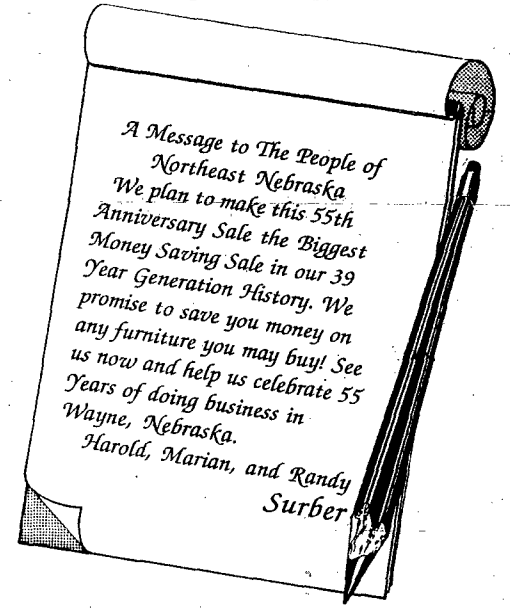 A Message to The People of
Northeast Nebraska
We plan to make this 55th
Anniversary Sale the Biggest
Money Saving Sale in our 39
Year Generation History. We
promise to save you money on
any furniture you may buy! See
us now and help us celebrate 55
Years of doing business in
Wayne, Nebraska.
Harold, Marian, and Randy
Surber